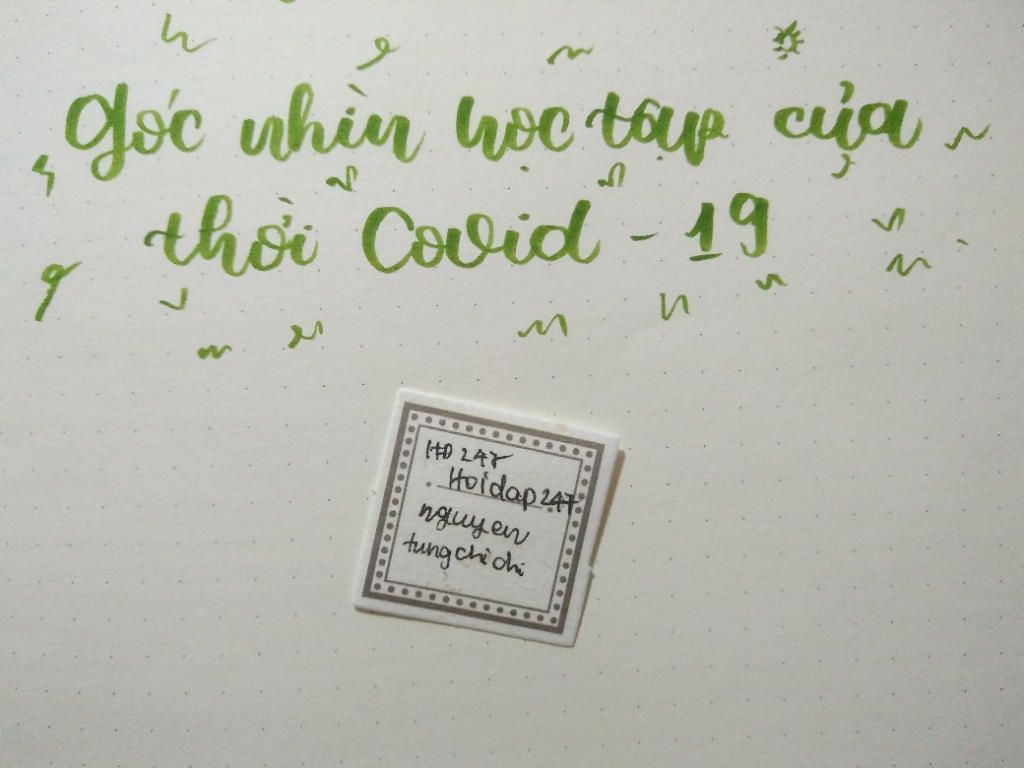 Góc nhìn học tập của
thời Covid - 19
HD 247
Hoidap247
nguyen
tungchichi